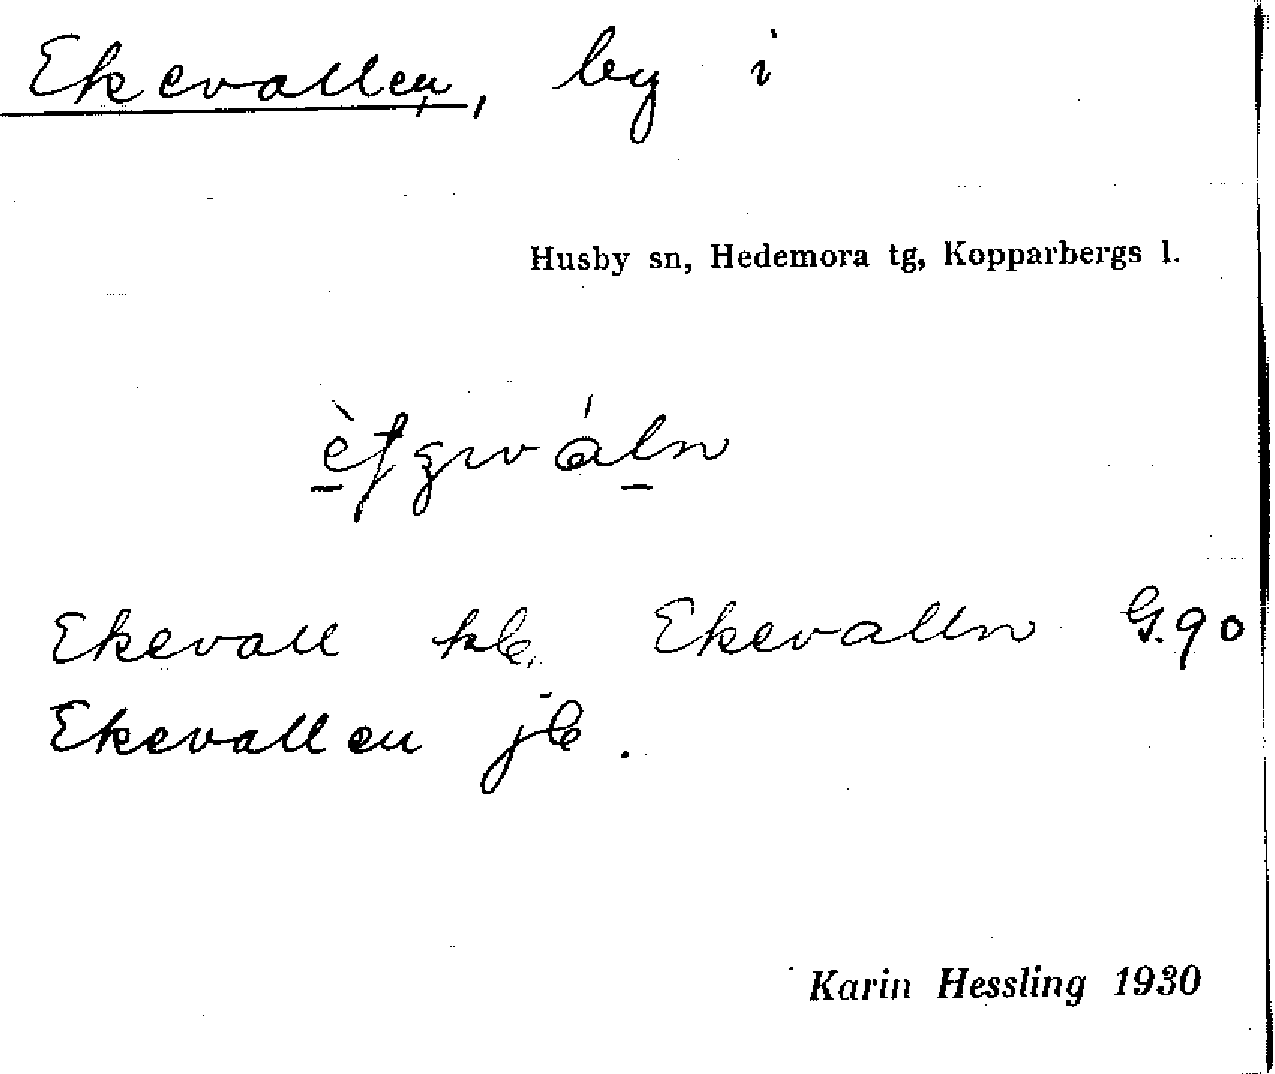 Ekevallen, by i
Husby sn, Hedemora tg, Kopparbergs l.
Ekevall kb. Ekevalln G.90
Ekevallen jb.
Karin Hessling 1930